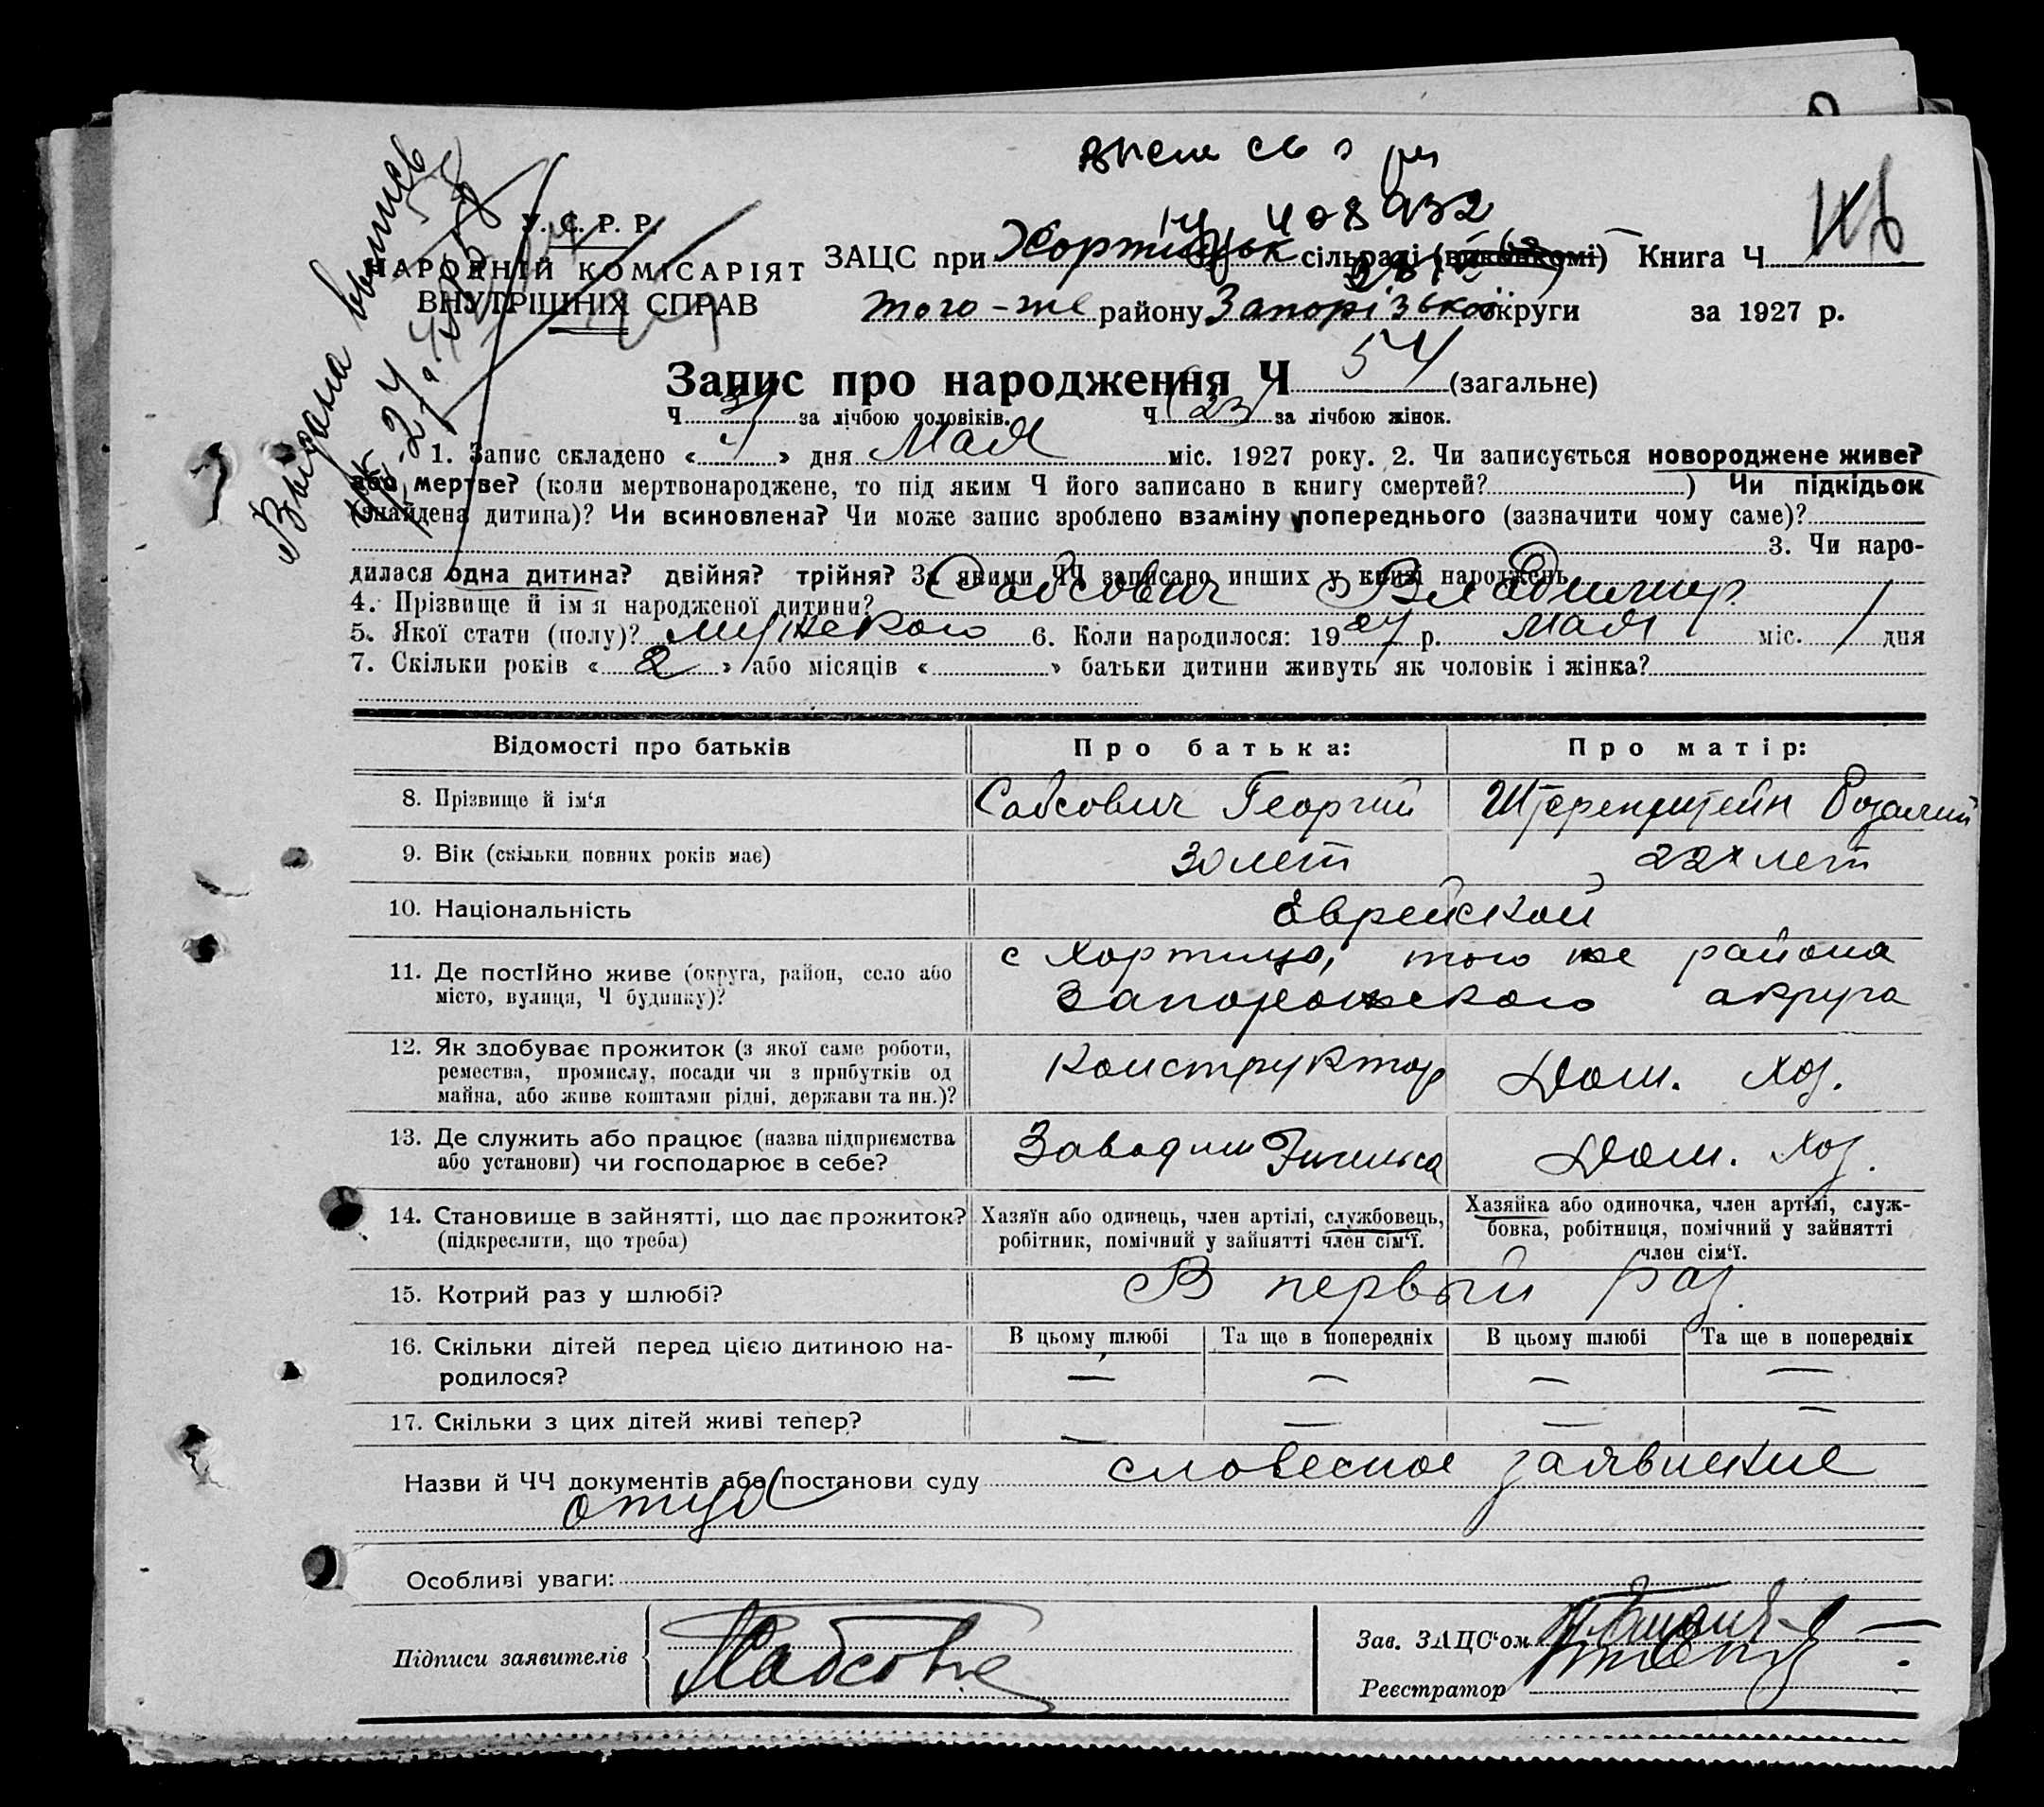 Выдана выпись
У. С. Р. Р.
НАРОДНІЙ КОМІСАРІЯТ
ВНУТРІШНІХ СПРАВ
ЗАЦС при Хортицьк сільраді (виконкомі) Книга Ч
того-же району Запорізької округи за 1927 р.
Запис про народження Ч 54 (загальне)
Ч 31 за лічбою чоловіків. Ч 23 за лічбою жінок.
1. Запис складено « 4 » дня Мая міс. 1927 року. 2. Чи записується новороджене живе?
або мертве? (коли мертвонароджене, то під яким Ч його записано в книгу смертей? ) Чи підкідьок
(знайдена дитина)? Чи всиновлена? Чи може запис зроблено взаміну попереднього (зазначити чому саме)?
3. Чи наро-
дилася одна дитина? двійня? трійня? За якими ЧЧ записано инших у книзі народжень
4. Прізвище й ім'я народженої дитини? Сабсович Владимир
5. Якої стати (полу)? мужского 6. Коли народилося: 1927 р. Мая міс. 1 дня
7. Скільки років « 2 » або місяців « » батьки дитини живуть як чоловік і жінка?
Відомості про батьків Про батька: Про матір:
8. Прізвище й ім'я Сабсович Георгий Штеренштейн Розалия
9. Вік (скільки повних років має) 30 лет 22х лет
10. Національність Еврейской
11. Де постійно живе (округа, район, село або с Хортица, того же района
місто, вулиця, Ч будинку)? Запорожского округа
12. Як здобуває прожиток (з якої саме роботи, Конструктор Дом. хоз.
ремества, промислу, посади чи з прибутків од
майна, або живе коштами рідні, держави та ин.)?
13. Де служить або працює (назва підприємства Завод им Энгельса Дом. хоз.
або установи) чи господарює в себе?
14. Становище в зайнятті, що дає прожиток? Хазяїн або одинець, член артілі, службовець, Хазяйка або одиночка, член артілі, служ-
(підкреслити, що треба) робітник, помічний у зайнятті член сім'ї. бовка, робітниця, помічний у зайнятті
член сім'ї.
15. Котрий раз у шлюбі? В первый раз.
16. Скільки дітей перед цією дитиною на- В цьому шлюбі Та ще в попередніх В цьому шлюбі Та ще в попередніх
родилося? — — — —
17. Скільки з цих дітей живі тепер? — — — —
Назви й ЧЧ документів або постанови суду словесное заявление
отца
Особливі уваги:
Підписи заявителів
Зав. ЗАЦС'ом
Реєстратор